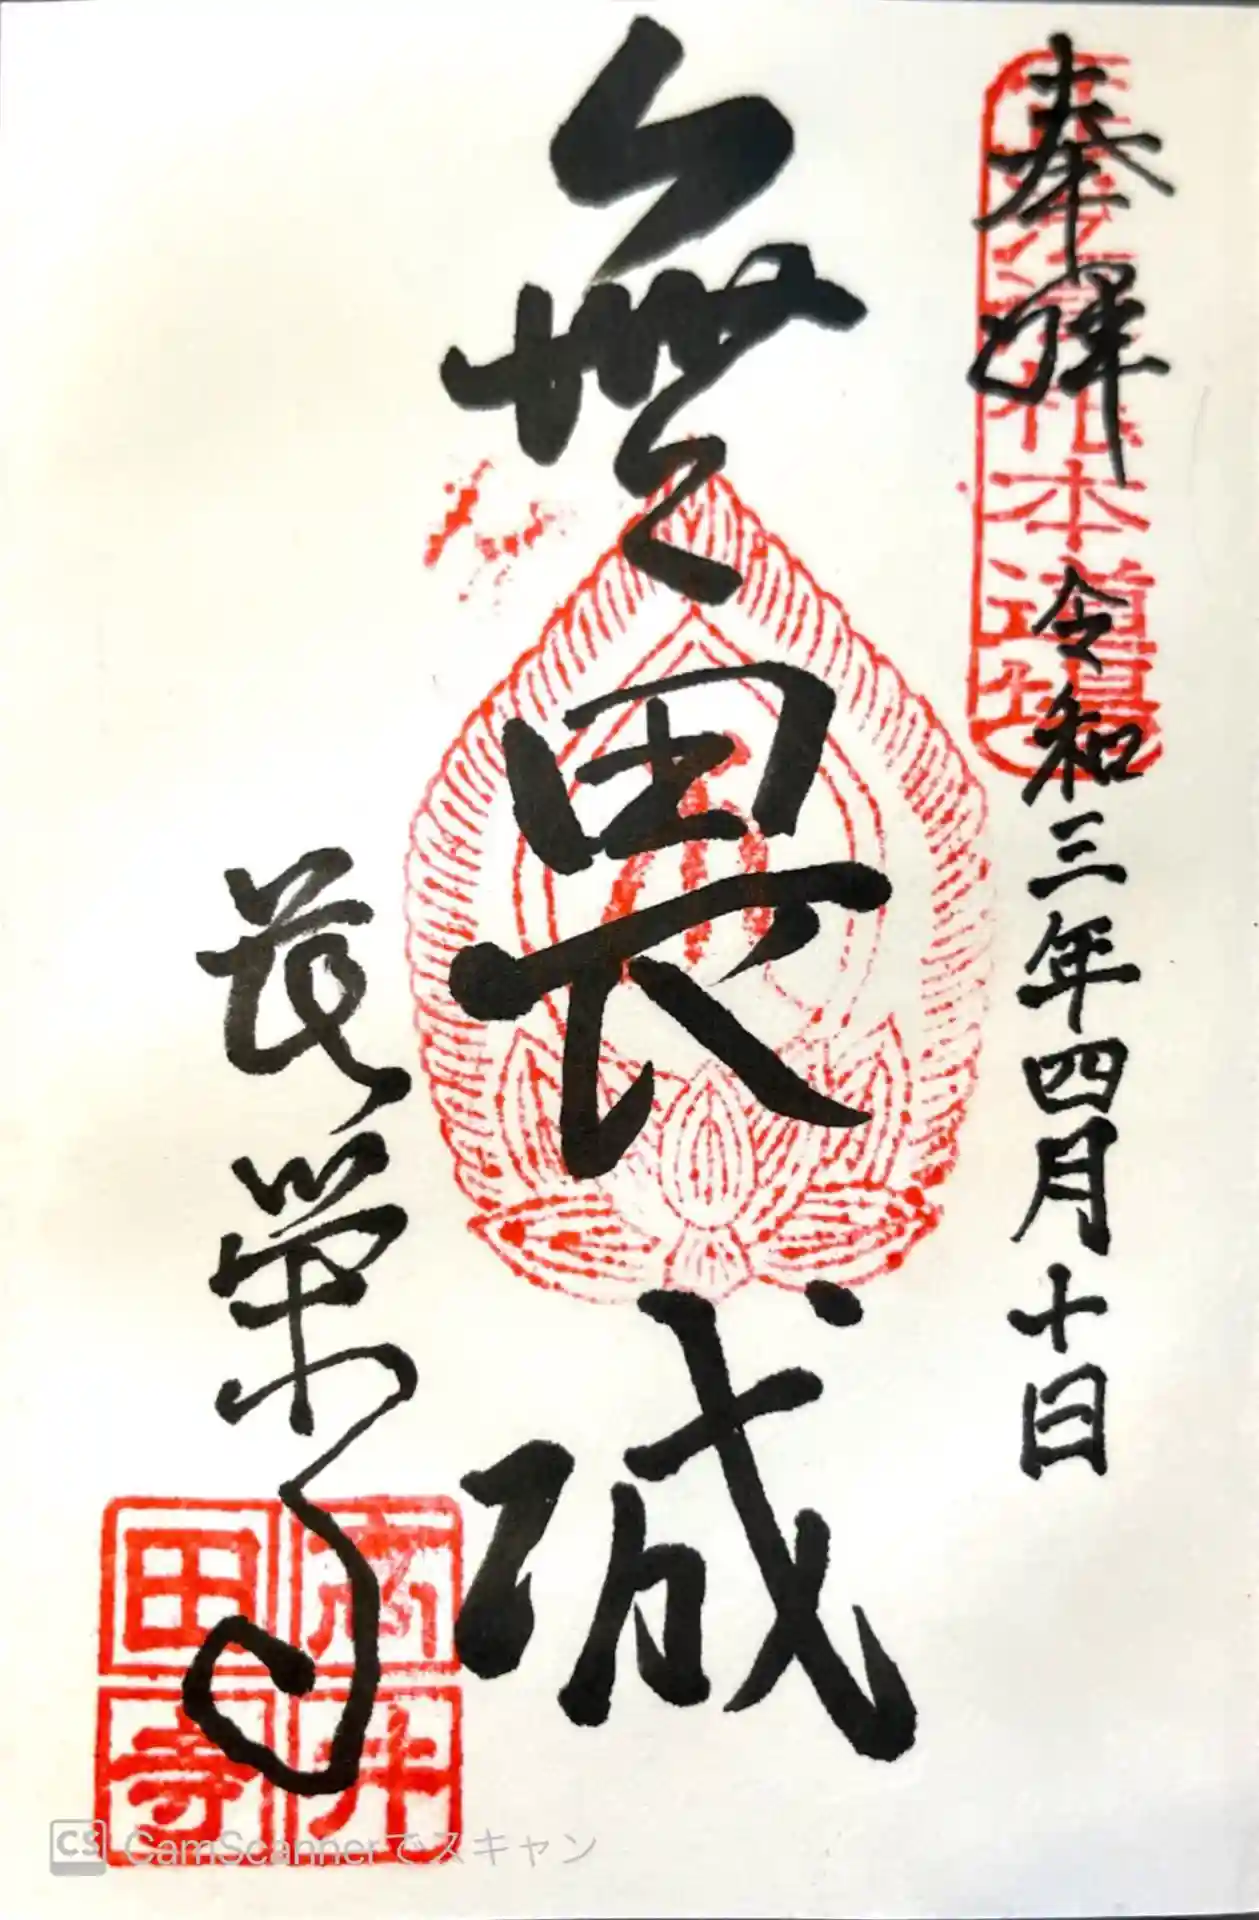 奉拝 令和三年四月十日
正法律根本道場
無畏城
長榮寺
高井田寺
CS CamScannerでスキャン